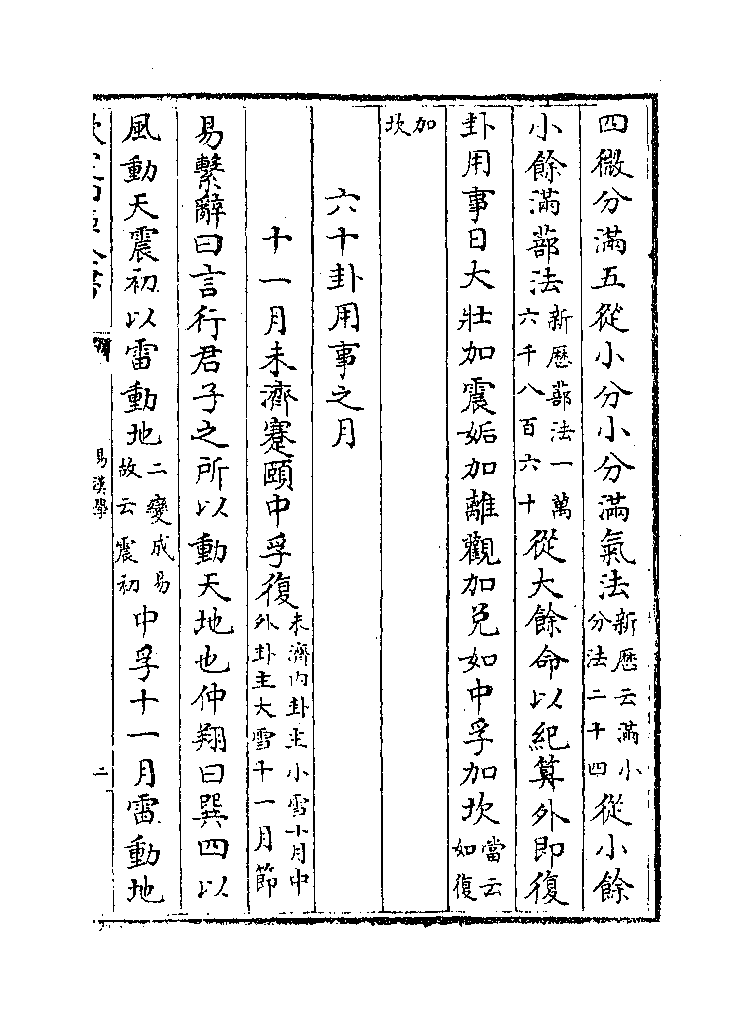 四微分滿五從小分小分滿氣法新厯云滿小分法二十四從小餘
小餘滿蔀法新厯蔀法一萬六千八百六十從大餘命以紀算外即復
卦用事日大壯加震姤加離觀加兌如中孚加坎當云如復
加坎
六十卦用事之月
十一月未濟蹇頤中孚復未濟内卦主小雪十月中外卦主大雪十一月節
易繫辭曰言行君子之所以動天地也仲翔曰巽四以
風動天震初以雷動地二變成易故云震初中孚十一月雷動地
易漢學
二